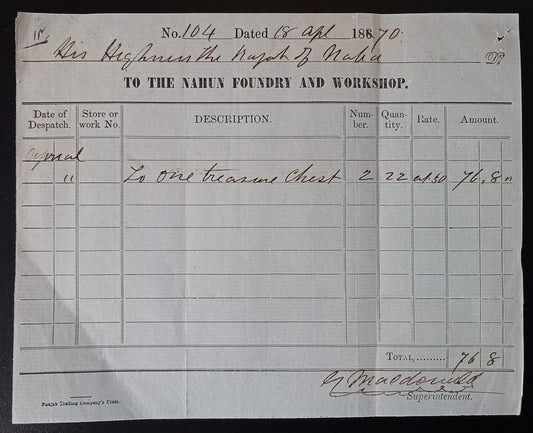 No. 104 Dated 18 Apl 18670
His Highness the Rajah of Naba Dr.
TO THE NAHUN FOUNDRY AND WORKSHOP.
Date of Despatch. Store or work No. DESCRIPTION. Number. Quantity. Rate. Amount.
" To one treasure chest 2 22 at 30 76, 8 "
TOTAL,......... 76 8
Macdonald
Superintendent.
Punjab Trading Company's Press.